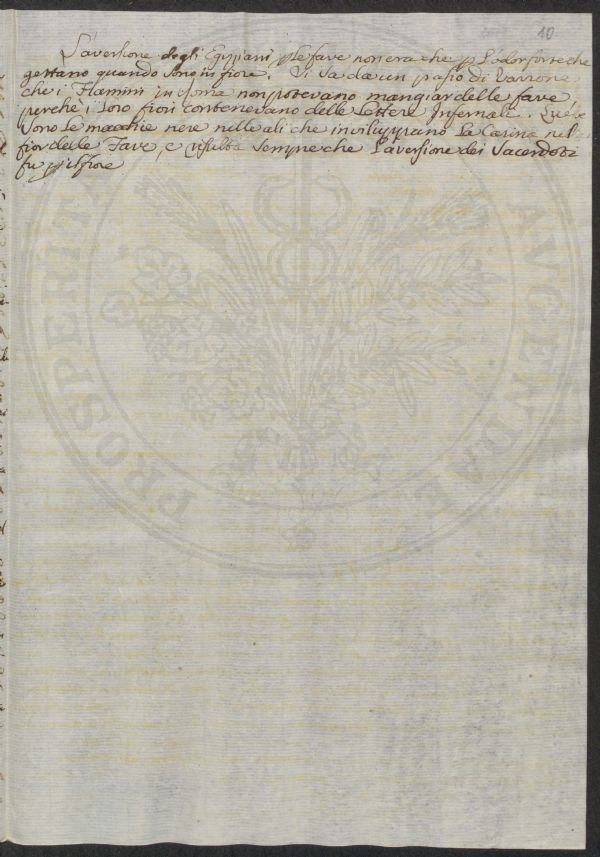 10
L'aversione degli Egiziani p le fave non era che p l'odor forte che
gettano quando sono in fiore. Vi sa da un passo di Varrone
che i Flamini in Roma non potevano mangiar delle fave
perchè i loro fiori contenevano delle Lettere infernali.
sono le macchie nere nelle ali che inviluppano la Carina nel
fior delle Fave, e risulta sempre che l'aversione dei Sacerdoti
fu p il fiore
PROSPERITATI AUGENDAE